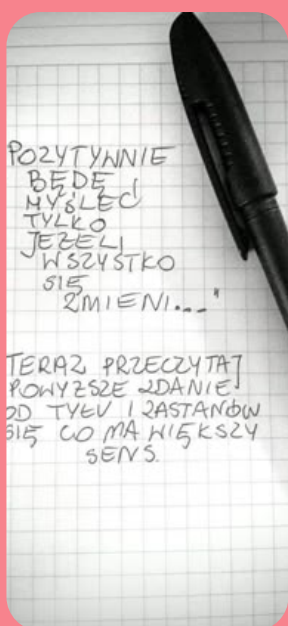 POZYTYWNIE
BĘDĘ
MYŚLEĆ
TYLKO
JEŻELI
WSZYSTKO
SIĘ
ZMIENI..."
TERAZ PRZECZYTAJ
POWYŻSZE ZDANIE
OD TYŁU I ZASTANÓW
SIĘ CO MA WIĘKSZY
SENS.